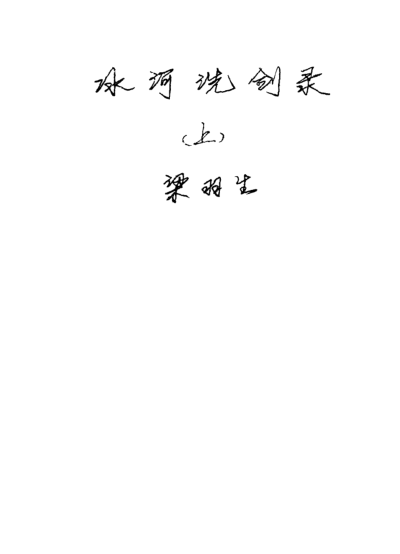 冰河洗剑录
（上）
梁羽生